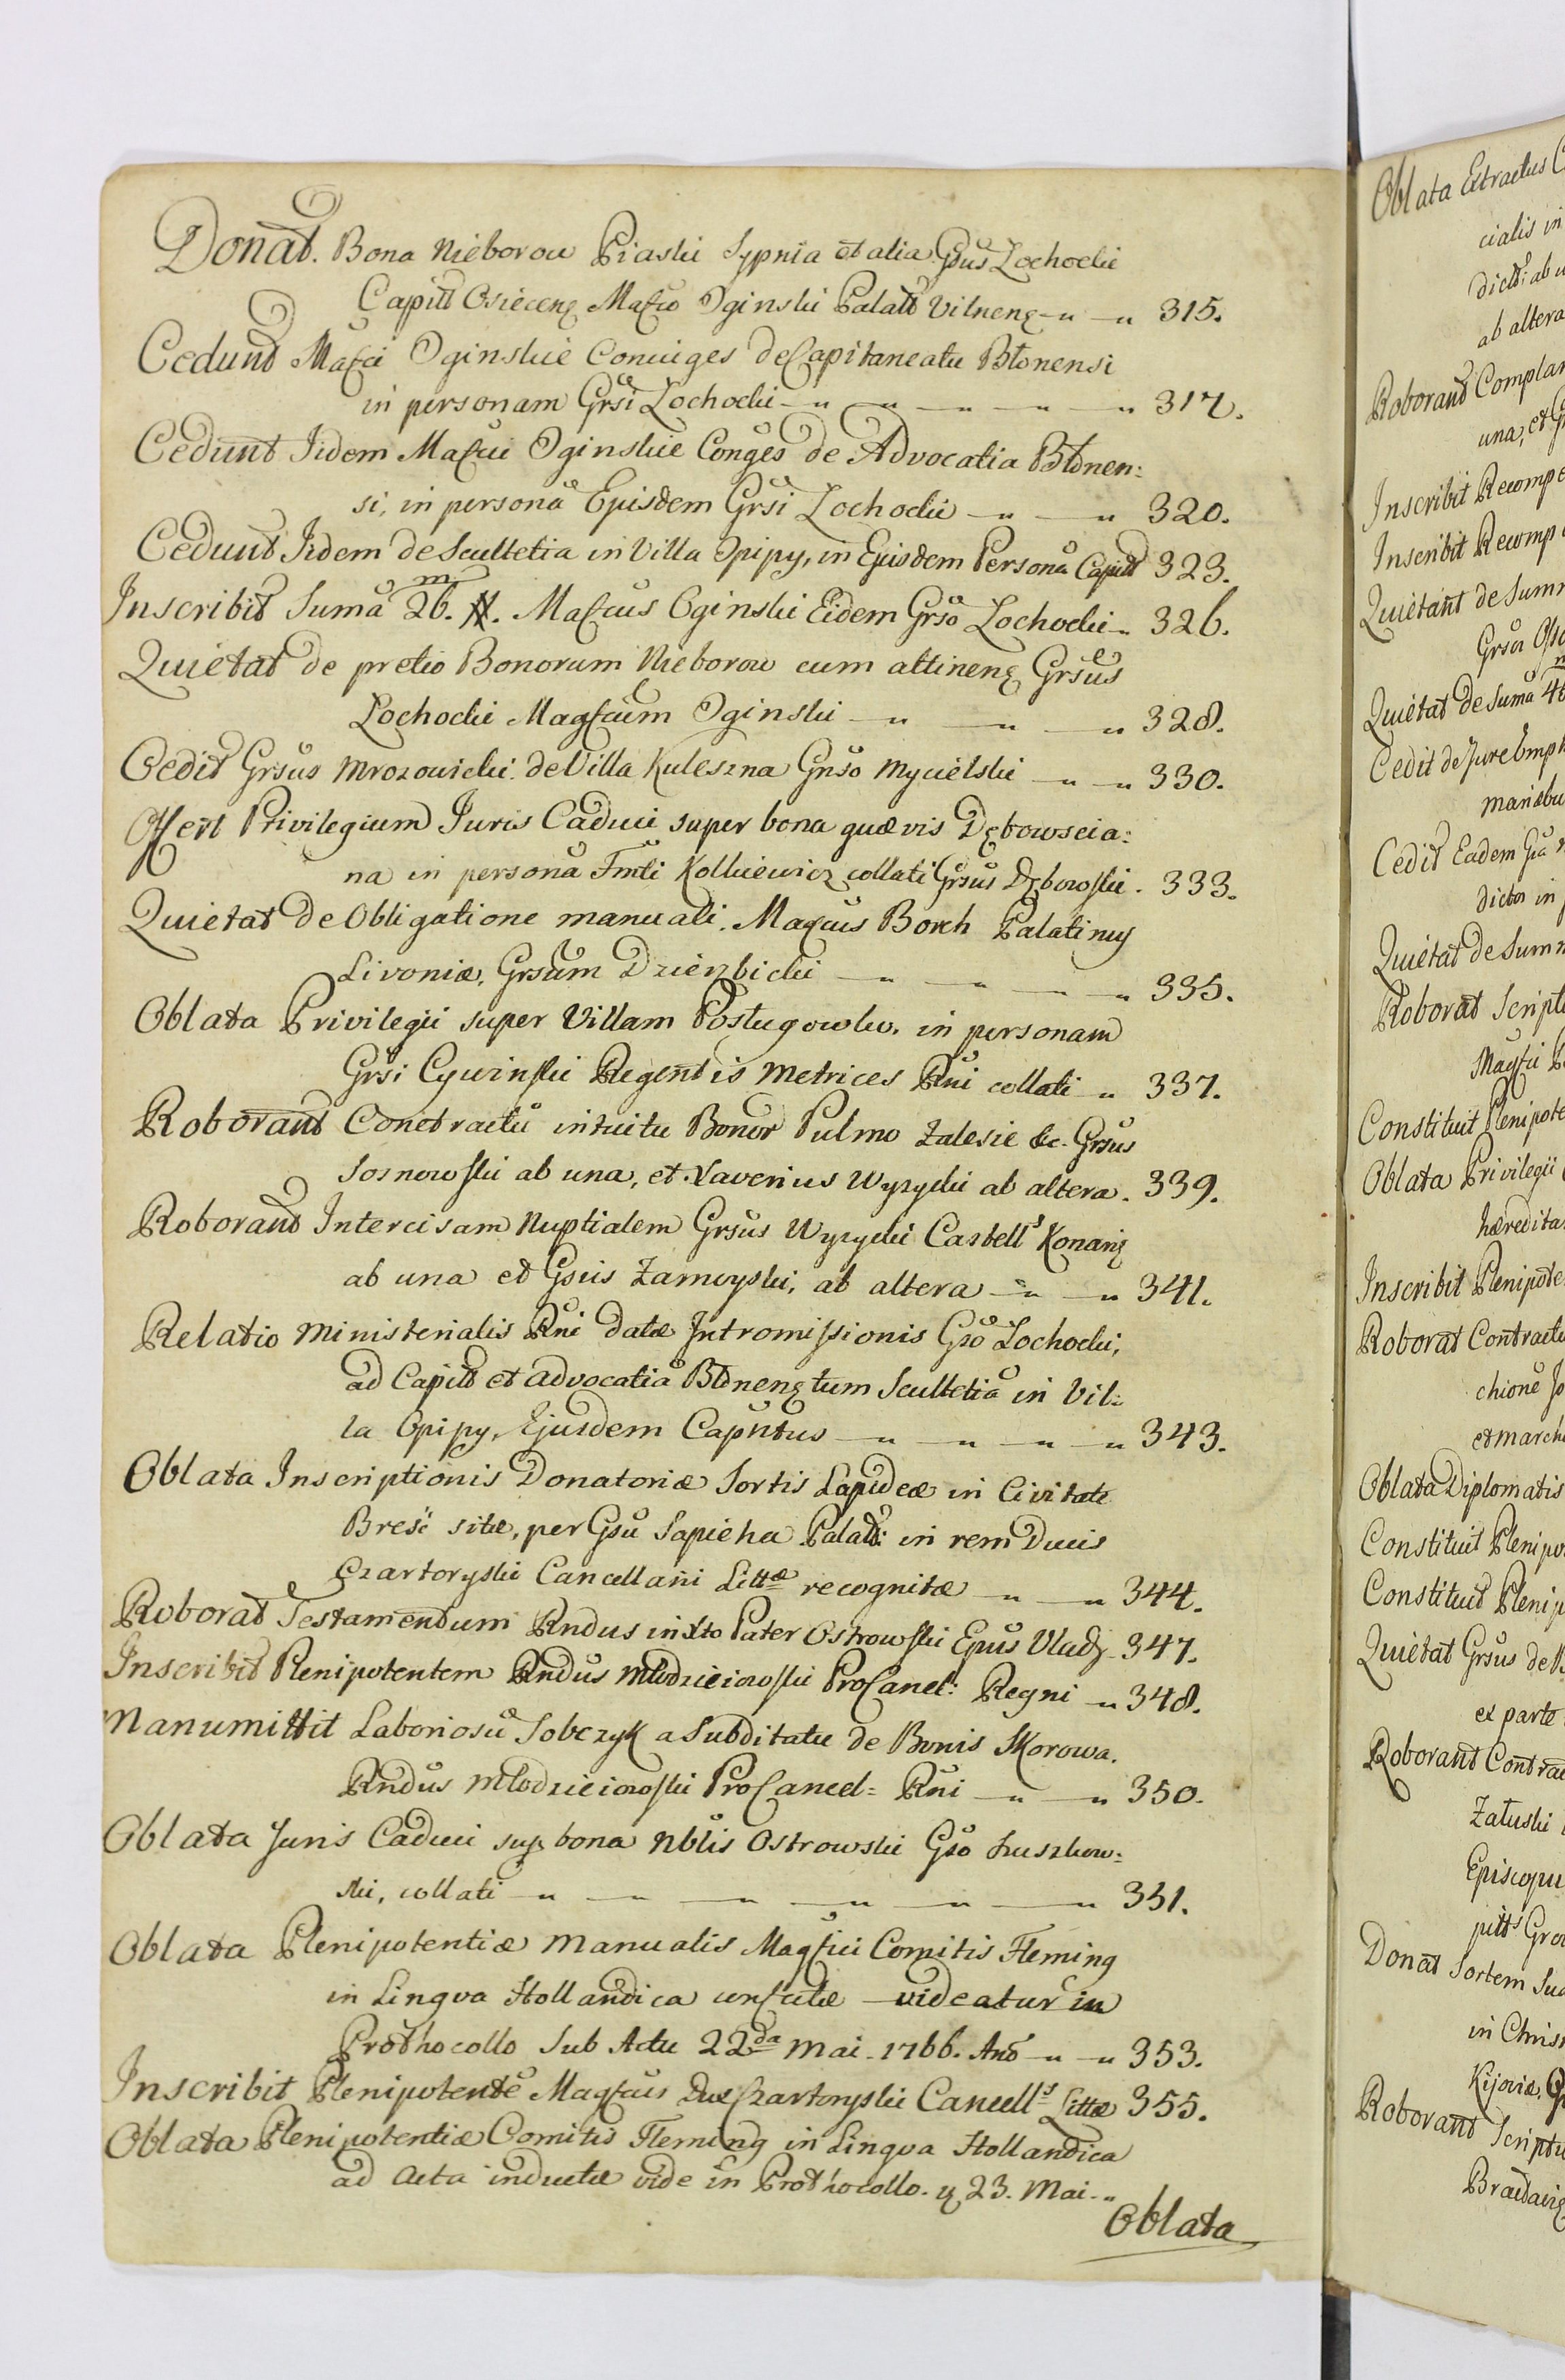 Donat. Bona Nieborow Piaski Sypnia et alia Gsus Lochocki
Capitt Osiecenę Mafco Oginski Palatt Vilnenę — " — " 315.
Cedunt Mafci Oginskie Coniuges de Capitaneatu Błonensi
in personam Grsi Lochocki — " — " — " — " — " 317.
Cedunt Iidem Mafici Oginskie Conges de Advocatia Błonen:
si, in persona Ejusdem Grsi Lochocki — " — " 320.
Cedunt Iidem de Scultetia in Villa Opipy, in Ejusdem Persona Capitt 323.
Inscribit Suma 26.m #. Mafcus Oginski Eidem Grso Lochocki — " 326.
Quietat de pretio Bonorum Nieborow cum attinenę Grsus
Lochocki Magfcum Oginski — " — " — " 328.
Cedit Grsus Mrozowicki de Villa Kuleszna Gnso Mycielski — " — " 330.
Offert Privilegium Juris Caduci super bona quævis Dębowscia:
na in persona Fmti Kolkiewicz collati Grsus Dębowski . 333.
Quietat de Obligatione manuali. Magcus Borch Palatinus
Livoniæ, Grsum Dzierzbicki — " — " — " — " 335.
Oblata Privilegii super Villam Postugowka in personam
Grsi Cywinski Regentis Metrices Rni collati " 337.
Roborant Conctractu intuitu Bonor Pulmo Zalesie &c. Grsus
Sosnowski ab una, et Xaverius Wyzycki ab altera . 339.
Roborant Intercisam Nuptialem Grsus Wyzycki Castells Konarię
ab una et Gscis Zamoyski, ab altera — " — " 341.
Relatio Ministerialis Rni datæ Intromissionis Gso Lochocki,
ad Capitt et advocatia Błonenę tum Scultetia in Vil:
la Opipy, Ejusdem Capntus — " — " — " — " 343.
Oblata Inscriptionis Donatoriæ Sortis Lapideæ in Civitate
Bresć sitæ, per Gsu Sapieha Palatt: in rem Ducis
Czartoryski Cancellarii Littæ recognitæ — " — " 344.
Roborat Testamentum Rndus in Xto Pater Ostrowski Epus Vladę 347.
Inscribit Plenipotentem Rndus Młodzieiowski ProCancl: Regni — " 348.
Manumittit Laboriosu Sobczyk a Subditatu de Bonis Skorowa.
Rndus Młodzieiowski ProCancel: Rni — " — " 350.
Oblata Juris Caduci sup bona Nblis Ostrowski Gso Łuszkow:
ski, collati — " — " — " — " — " — " 351.
Oblata Plenipotentiæ Manualis Magfici Comitis Fleming
in Lingva Hollandica confectæ — videatur in
Prothocollo Sub Actu 22da Mai 1766. Ano — " — " 353.
Inscribit Plenipotente Magfcus Dux Czartoryski Cancells Littæ 355.
Oblata Plenipotentiæ Comitis Fleming in Lingva Hollandica
ad acta inductæ vide in Prothocollo . 23. Mai . "
Oblata
Oblata Extractus
cialis in
dictt: ab u
ab altera
Roborant Complan
una, et G
Inscribit Recompe
Inscribit Recomp
Quietant de Summ
Grsor
Quietat de Suma 4
Cedit de Jure Emph
mariæbu
Cedit Eadem Gsa
dictor in
Quietat de Summ
Roborat Scriptu
Magfci P
Constituit Plenipote
Oblata Privilegii
hæredita
Inscribit Plenipote
Roborat Contractu
chione Jo
et march
Oblata Diplomatis
Constituit Plenipo
Constituit Plenip
Quietat Grsus de
ex parte
Roborant Contrac
Załuski
Episcopu
pitts Gro
Donat Sortem Sua
in Chris
Kijoviæ,
Roborant Scriptu